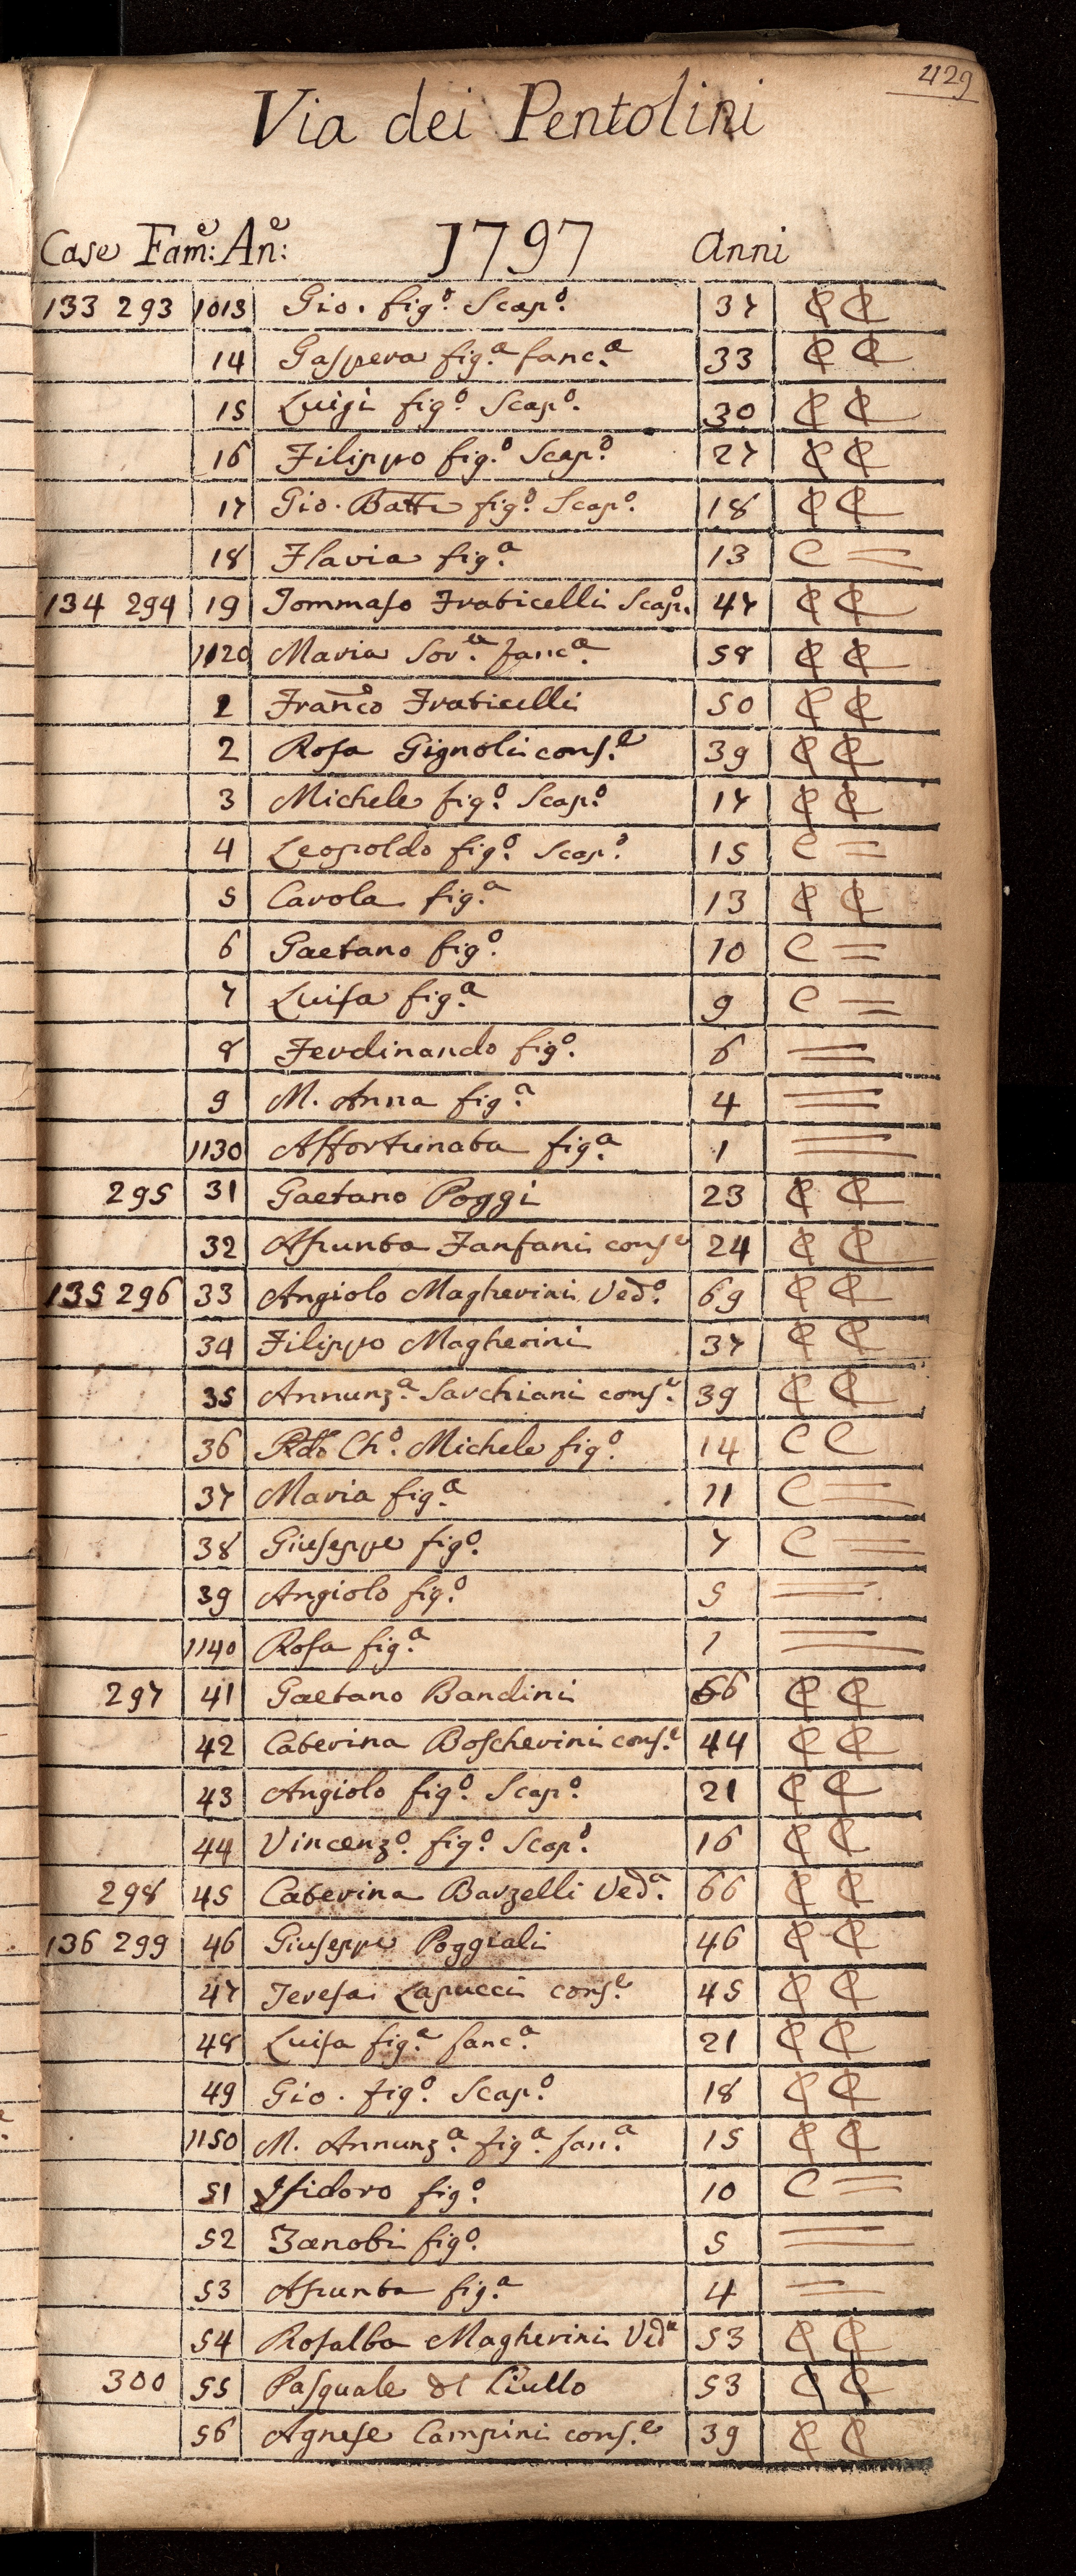 429
Via dei Pentolini
Case Fam:e An:e 1797 Anni
133 293 1013 Gio. fig.o Scap.o 37 ₵ ₵
14 Gaspera fig.a fanc.a 33 ₵ ₵
15 Luigi fig.o Scap.o 30 ₵ ₵
16 Filippo fig.o Scap.o 27 ₵ ₵
17 Gio. Batta fig.o Scap.o 18 ₵ ₵
18 Flavia fig.a 13 C =
134 294 19 Tommaso Fraticelli Scap.o 47 ₵ ₵
1120 Maria Sor.a fanc.a 58 ₵ ₵
1 Franco Fraticelli 50 ₵ ₵
2 Rosa Gignoli cons.e 39 ₵ ₵
3 Michele fig.o Scap.o 17 ₵ ₵
4 Leopoldo fig.o Scap.o 15 C =
5 Carola fig.a 13 ₵ ₵
6 Gaetano fig.o 10 C =
7 Luisa fig.a 9 C =
8 Ferdinando fig.o 6 =
9 M. Anna fig.a 4 =
1130 Affortunata fig.a 1 =
295 31 Gaetano Poggi 23 ₵ ₵
32 Asunta Fanfani cons.e 24 ₵ ₵
135 296 33 Angiolo Magherini Ved.o 69 ₵ ₵
34 Filippo Magherini 37 ₵ ₵
35 Annunz.a Sarchiani cons.e 39 ₵ ₵
36 Rdo Ch.o Michele fig.o 14 C C
37 Maria fig.a 11 C =
38 Giuseppe fig.o 7 C =
39 Angiolo fig.o 5 =
1140 Rosa fig.a 1 =
297 41 Gaetano Bandini 66 ₵ ₵
42 Caterina Boscherini cons.e 44 ₵ ₵
43 Angiolo fig.o Scap.o 21 ₵ ₵
44 Vincenz.o fig.o Scap.o 16 ₵ ₵
298 45 Caterina Barzelli Ved.a 66 ₵ ₵
136 299 46 Giuseppe Poggiali 46 ₵ ₵
47 Teresa Lapucci cons.e 45 ₵ ₵
48 Luisa fig.a fanc.a 21 ₵ ₵
49 Gio. fig.o Scap.o 18 ₵ ₵
1150 M. Annunz.a fig.a fan.a 15 ₵ ₵
51 Isidoro fig.o 10 C =
52 Zanobi fig.o 5 =
53 Asunta fig.a 4 =
54 Rosalba Magherini Ved.a 53 ₵ ₵
300 55 Pasquale del Ciullo 53 ₵ ₵
56 Agnese Campini cons.e 39 ₵ ₵